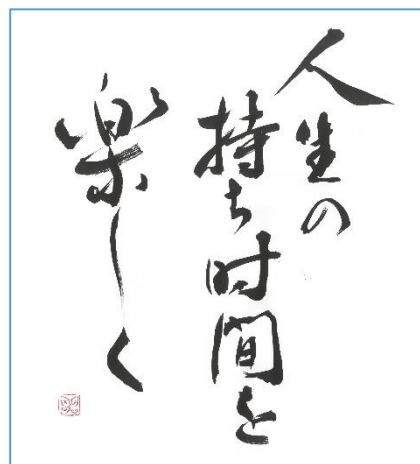 人生の
持ち时間を
楽しく